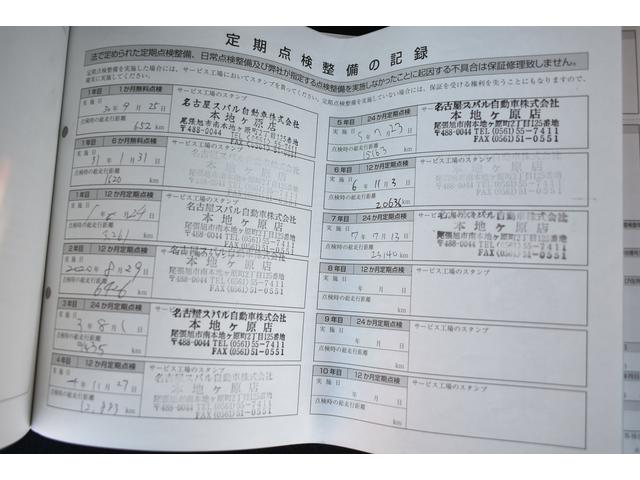 定期点検整備の記録
法で定められた定期点検整備、日常点検整備及び弊社が指定する点検整備を実施しなかったことに起因する不具合は保証修理致しません。
定期点検整備を実施した場合には、サービス工場においてスタンプを貰ってください。定期点検整備を実施していない場合には、保証を受ける権利を失うこともありますので、
確実に実施してください。
1年目 1か月無料点検 サービス工場のスタンプ
実施日 30年9月25日
点検時の総走行距離 652 km
名古屋スバル自動車株式会社
本地ヶ原店
尾張旭市南本地ヶ原町2丁目125番地
〒488-0044 TEL(0561)55-7411
FAX(0561)51-0551
1年目 6か月無料点検 サービス工場のスタンプ
実施日 31年1月31日
点検時の総走行距離 1520 km
名古屋スバル自動車株式会社
本地ヶ原店
尾張旭市南本地ヶ原町2丁目125番地
〒488-0044 TEL(0561)55-7411
FAX(0561)51-0551
1年目 12か月定期点検 サービス工場のスタンプ
実施日
点検時の総走行距離 3261 km
名古屋スバル自動車株式会社
本地ヶ原店
尾張旭市南本地ヶ原町2丁目125番地
〒488-0044 TEL(0561)55-7411
FAX(0561)51-0551
2年目 12か月定期点検 サービス工場のスタンプ
実施日 2020年8月29日
点検時の総走行距離 6426 km
名古屋スバル自動車株式会社
本地ヶ原店
尾張旭市南本地ヶ原町2丁目125番地
〒488-0044 TEL(0561)55-7411
FAX(0561)51-0551
3年目 24か月定期点検 サービス工場のスタンプ
実施日 3年8月1日
点検時の総走行距離 km
名古屋スバル自動車株式会社
本地ヶ原店
尾張旭市南本地ヶ原町2丁目125番地
〒488-0044 TEL(0561)55-7411
FAX(0561)51-0551
4年目 12か月定期点検 サービス工場のスタンプ
実施日 4年11月27日
点検時の総走行距離 12,883 km
名古屋スバル自動車株式会社
本地ヶ原店
尾張旭市南本地ヶ原町2丁目125番地
〒488-0044 TEL(0561)55-7411
FAX(0561)51-0551
5年目 24か月定期点検 サービス工場のスタンプ
実施日
点検時の総走行距離 15163 km
名古屋スバル自動車株式会社
本地ヶ原店
尾張旭市南本地ヶ原町2丁目125番地
〒488-0044 TEL(0561)55-7411
FAX(0561)51-0551
6年目 12か月定期点検 サービス工場のスタンプ
実施日 6年11月3日
点検時の総走行距離 20636 km
名古屋スバル自動車株式会社
本地ヶ原店
尾張旭市南本地ヶ原町2丁目125番地
〒488-0044 TEL(0561)55-7411
FAX(0561)51-0551
7年目 24か月定期点検 サービス工場のスタンプ
実施日 7年7月13日
点検時の総走行距離 23140 km
名古屋スバル自動車株式会社
本地ヶ原店
尾張旭市南本地ヶ原町2丁目125番地
〒488-0044 TEL(0561)55-7411
FAX(0561)51-0551
8年目 12か月定期点検 サービス工場のスタンプ
実施日 年 月 日
点検時の総走行距離 km
9年目 24か月定期点検 サービス工場のスタンプ
実施日 年 月 日
点検時の総走行距離 km
10年目 12か月定期点検 サービス工場のスタンプ
実施日 年 月 日
点検時の総走行距離 km